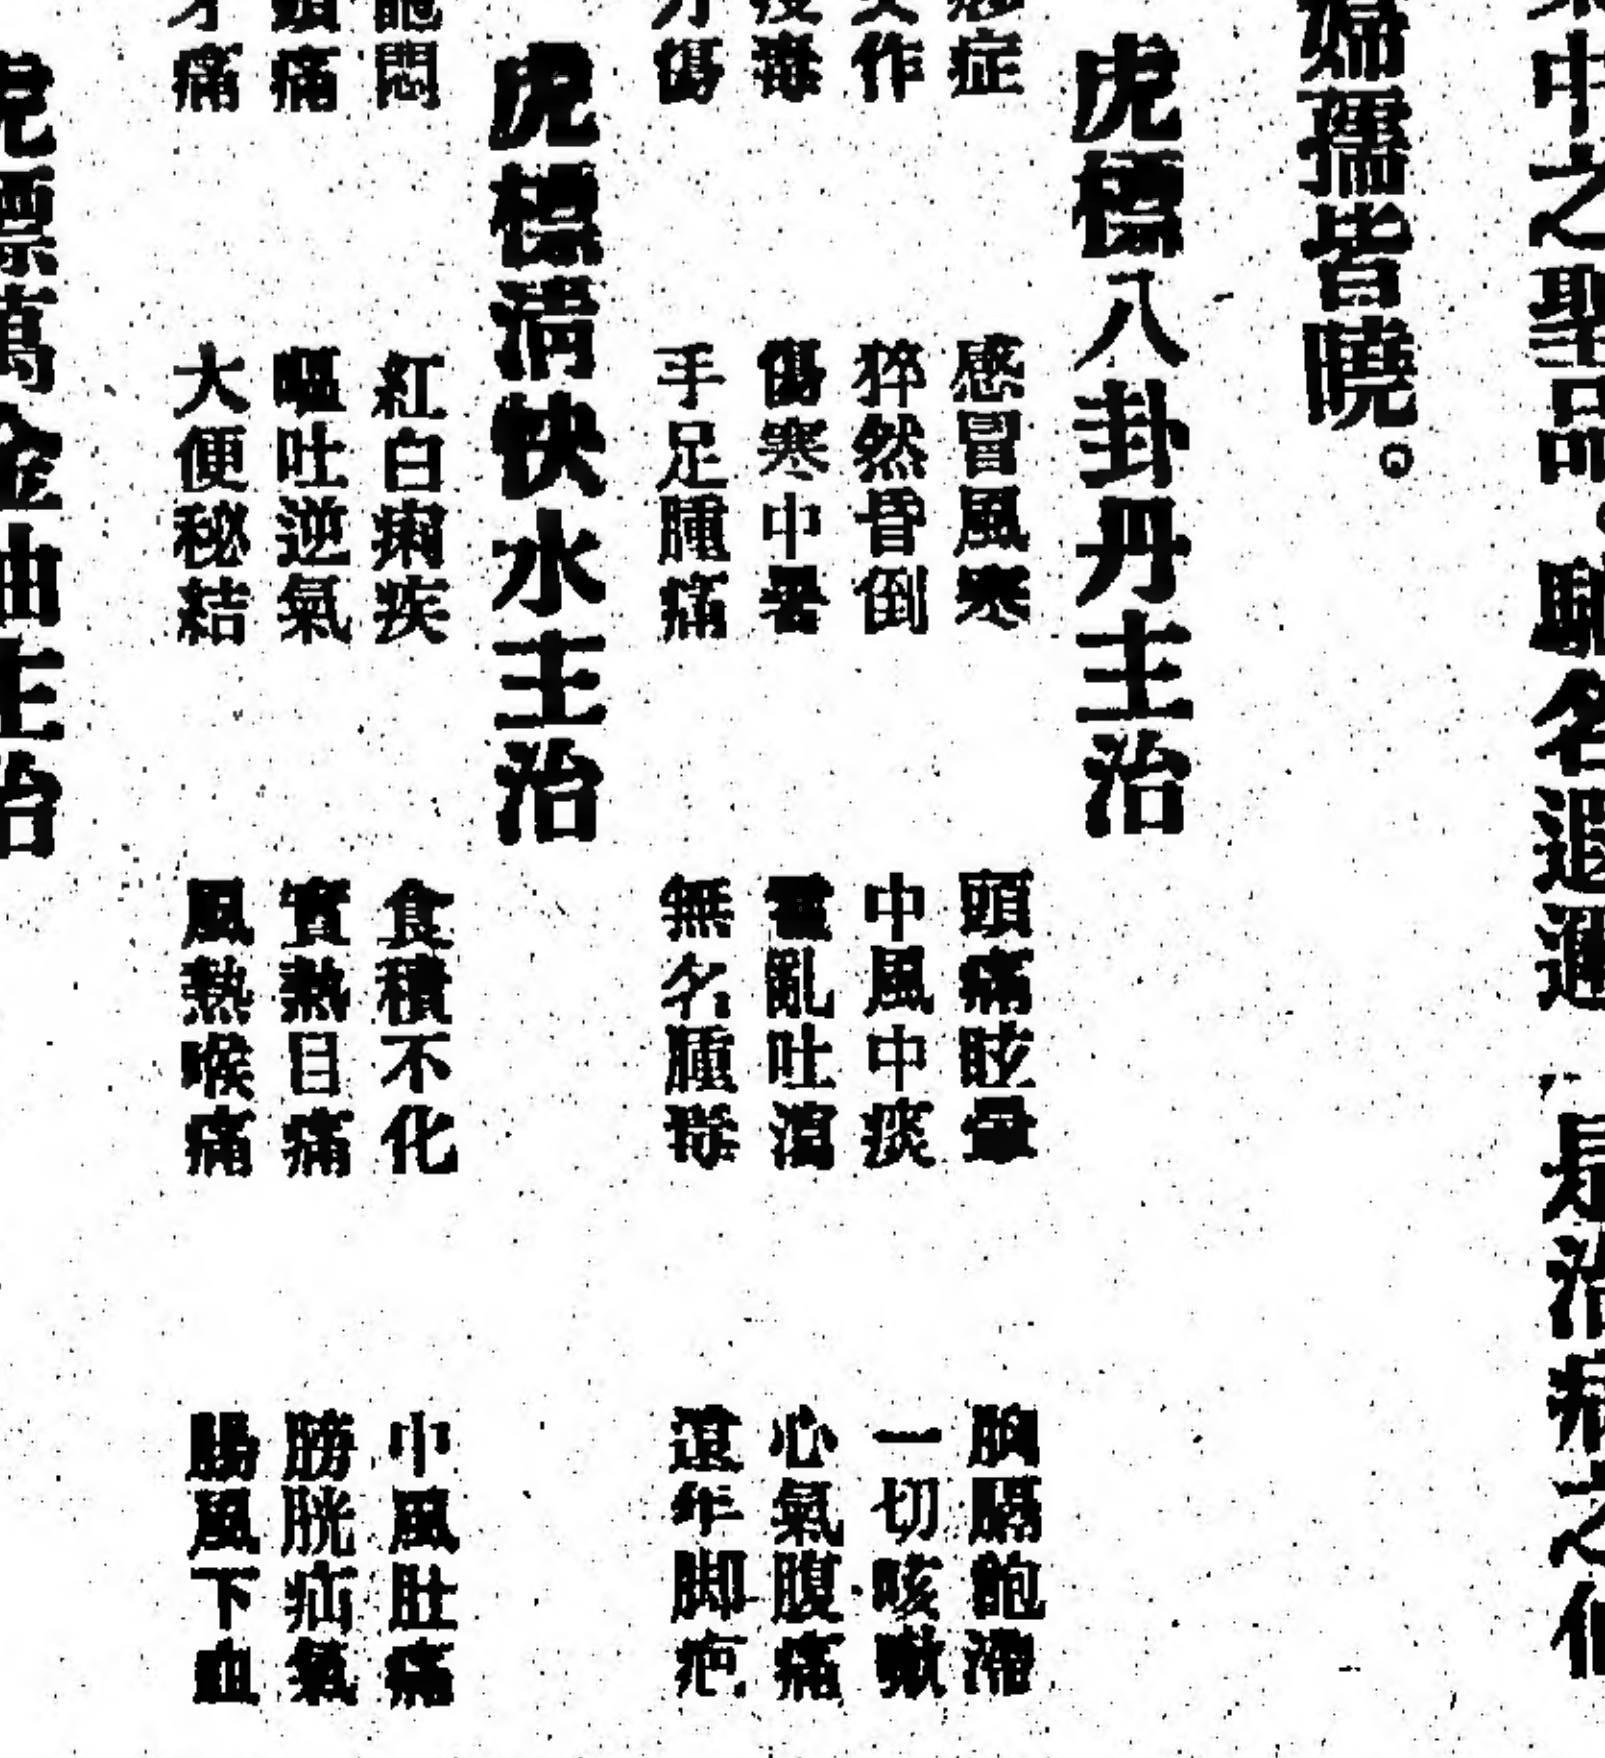 中之聖品。馳名遐邇 是治病之
婦孺皆曉。
虎標八卦丹主治
症 感冒風寒 頭痛眩暈 胸膈飽滯
作 猝然昏倒 中風中痰 一切咳嗽
毒 傷寒中暑 霍亂吐瀉 心氣腹痛
傷 手足腫痛 無名腫毒 遠年脚疤
虎標清快水主治
飽悶 紅白痢疾 食積不化 中風肚痛
頭痛 嘔吐逆氣 實熱目痛 膀胱疝氣
牙痛 大便秘結 風熱喉痛 腸風下血
虎標萬金油主治